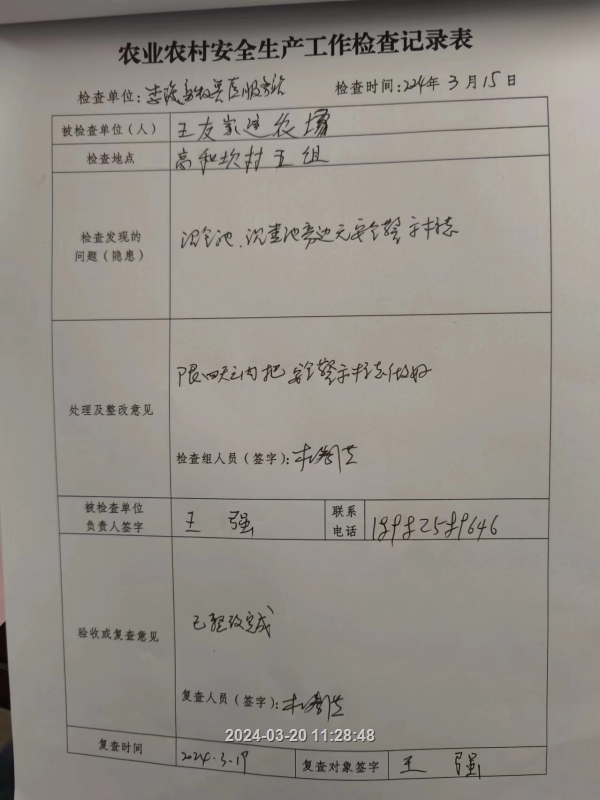 农业农村安全生产工作检查记录表
检查单位: 检查时间:2024年3月15日
被检查单位(人) 王友家庭农场
检查地点 高和坎村五组
检查发现的
问题(隐患)
池、沉渣池旁边无安全警示标志
处理及整改意见
限四天之内把安全警示标志做好
检查组人员(签字):
被检查单位
负责人签字
王强
联系
电话
验收或复查意见
已整改完成
复查人员(签字):
2024-03-20 11:28:48
复查时间 2024.3.19 复查对象签字 王强